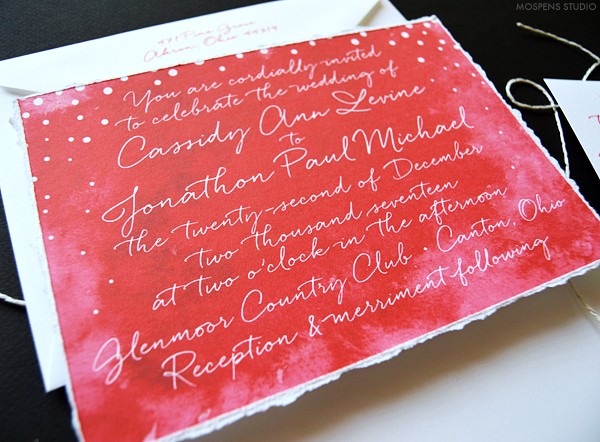 MOSPENS STUDIO
Akron, Ohio 44319
You are cordially invited
to celebrate the wedding of
Cassidy Ann Levine
to
Jonathon Paul Michael
the twenty-second of December
two thousand seventeen
at two o'clock in the afternoon
Glenmoor Country Club · Canton, Ohio
Reception & merriment following